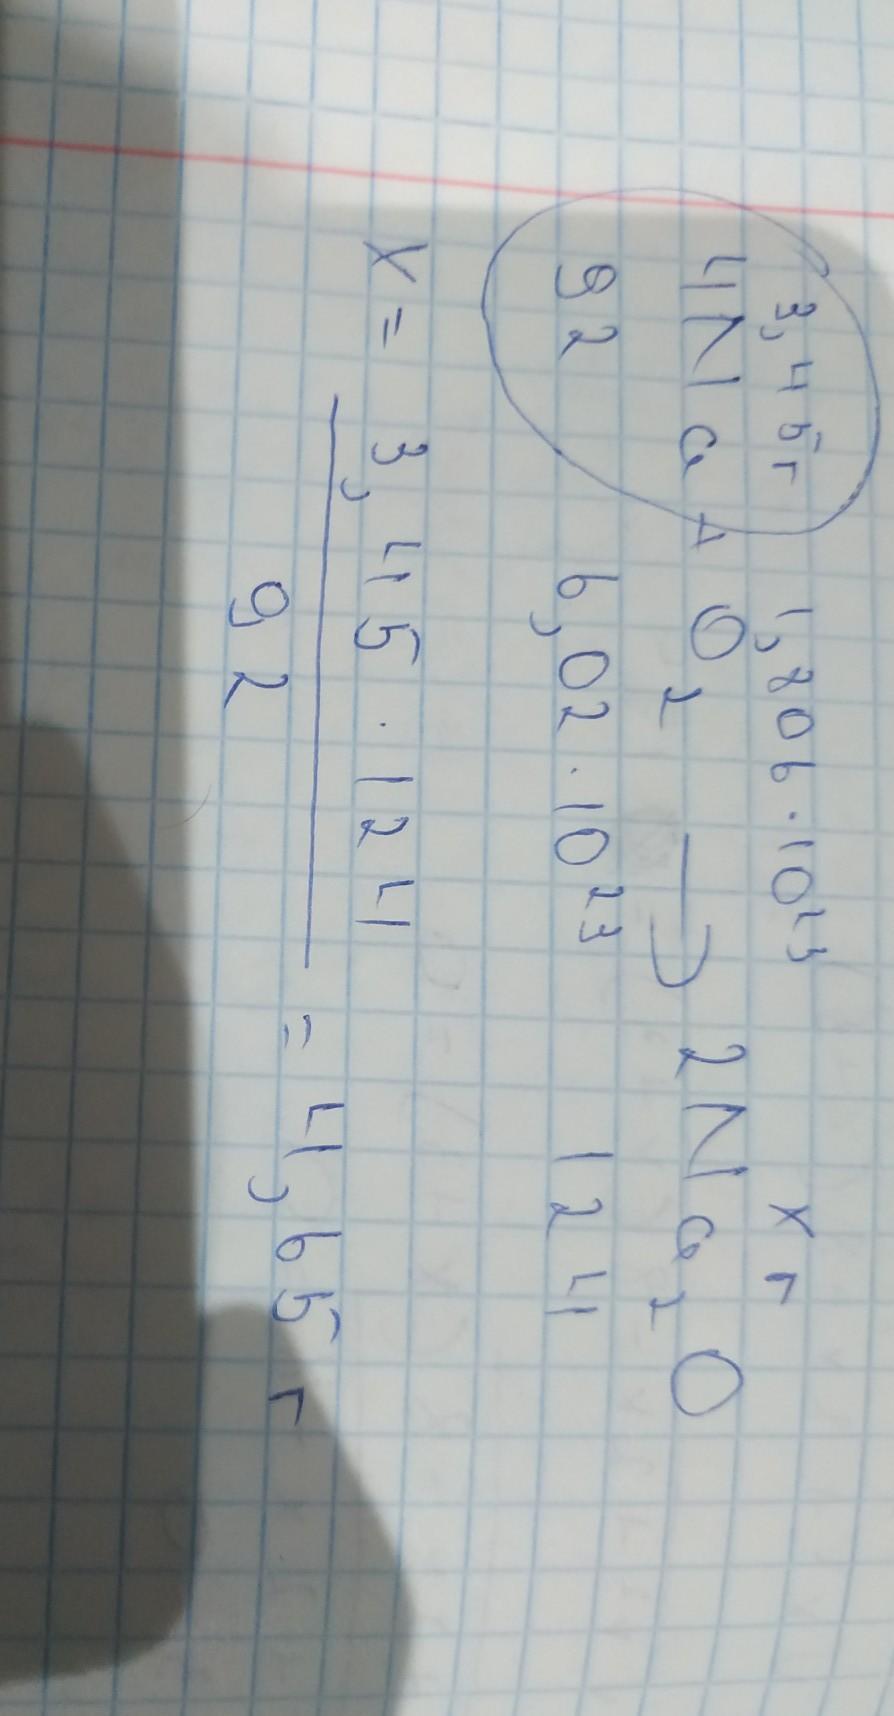 3,45г 1,806·10²³ x г
4Na + O₂ → 2Na₂O
92 6,02·10²³ 124
x = 3,45·124
92
= 4,65 г